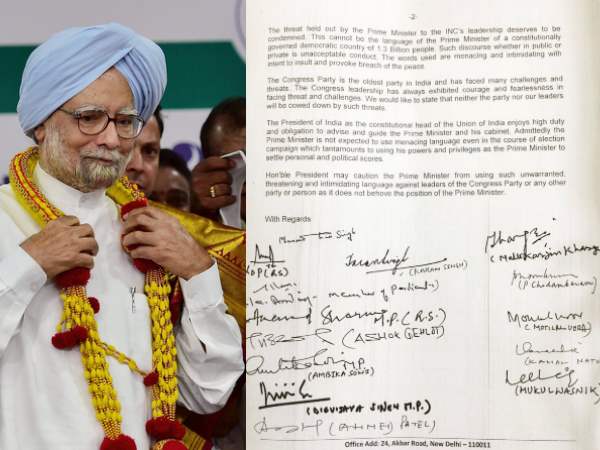 -2-
The threat held out by the Prime Minister to the INC's leadership deserves to be
condemned. This cannot be the language of the Prime Minister of a constitutionally
governed democratic country of 1.3 Billion people. Such discourse whether in public or
private is unacceptable conduct. The words used are menacing and intimidating with
intent to insult and provoke breach of the peace.
The Congress Party is the oldest party in India and has faced many challenges and
threats. The Congress leadership has always exhibited courage and fearlessness in
facing threat and challenges. We would like to state that neither the party nor our leaders
will be cowed down by such threats.
The President of India as the constitutional head of the Union of India enjoys high duty
and obligation to advise and guide the Prime Minister and his cabinet. Admittedly the
Prime Minister is not expected to use menacing language even in the course of election
campaign which tantamounts to using his powers and privileges as the Prime Minister to
settle personal and political scores.
Hon'ble President may caution the Prime Minister from using such unwarranted,
threatening and intimidating language against leaders of the Congress Party or any other
party or person as it does not behove the position of the Prime Minister.
With Regards
(KARAN SINGH)
(Mallikarjun Kharge
(P Chidambaram)
Member of Parliament
M.P. (R.S.)
(ASHOK GEHLOT)
(MOTILAL VORA)
M.P
(AMBIKA SONI)
(KAMAL NATH
(MUKUL WASNIK)
(DIGVIJAYA SINGH M.P.)
(AHMED PATEL)
Office Add: 24, Akbar Road, New Delhi - 110011